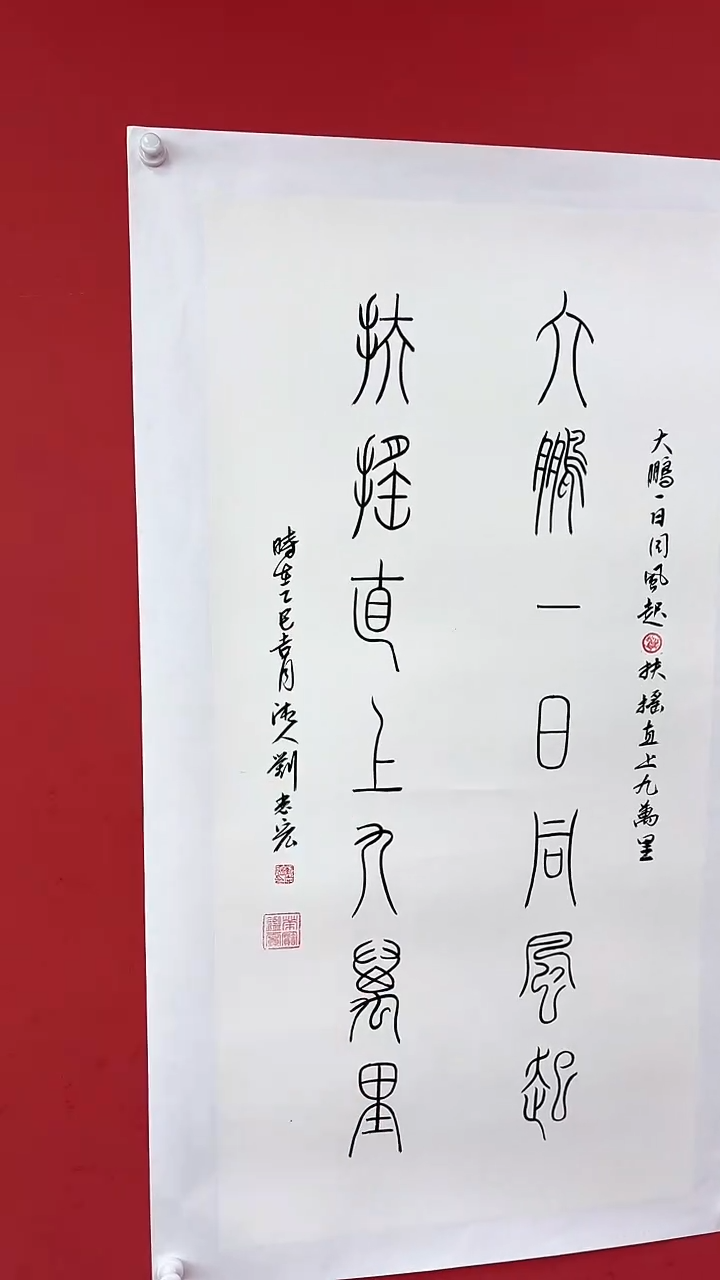 大鵬一日同風起扶搖直上九萬里
大鵬一日同風起
扶搖直上九萬里
時在乙巳吉月 人劉志宏